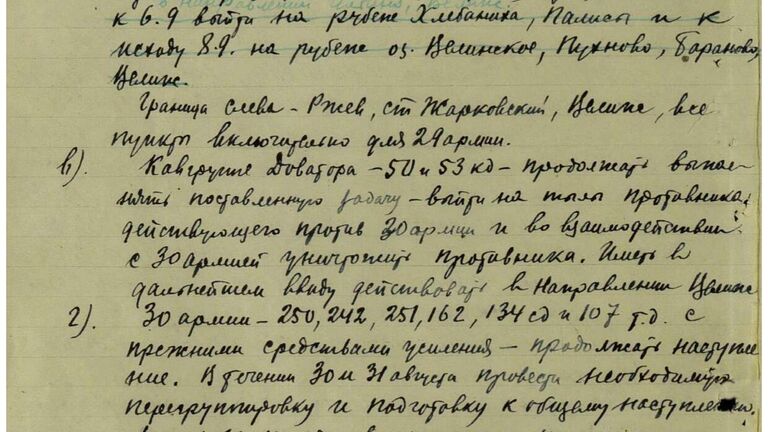 к 6.9 выйти на рубеже Хлебаниха, Палисы и к
исходу 8.9. на рубеже оз. Велинское, Пухново, Бараново,
Велиж.
Граница слева - Ржев, ст Жарковский, Велиж, все
пункты включительно для 29 армии.
в). Кавгруппе Доватора - 50 и 53 кд - продолжать выпол-
нять поставленную задачу - выйти на тылы противника,
действующего против 30 армии и во взаимодействии
с 30 армией уничтожить противника. Иметь в
дальнейшем ввиду действовать в направлении Велиж
г). 30 армии - 250, 242, 251, 162, 134 сд и 107 т.д. с
прежними средствами усиления - продолжать наступле-
ние. В течении 30 и 31 августа провести необходимую
перегруппировку и подготовку к общему наступлению.